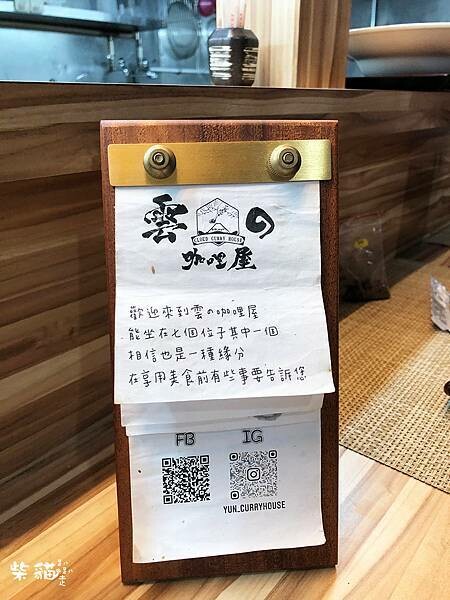 雲の
CLOUD CURRY HOUSE
咖哩屋
歡迎來到雲の咖哩屋
能坐在七個位子其中一個
相信也是一種緣分
在享用美食前有些事要告訴您
FB IG
YUN_CURRYHOUSE
柴貓趴趴走